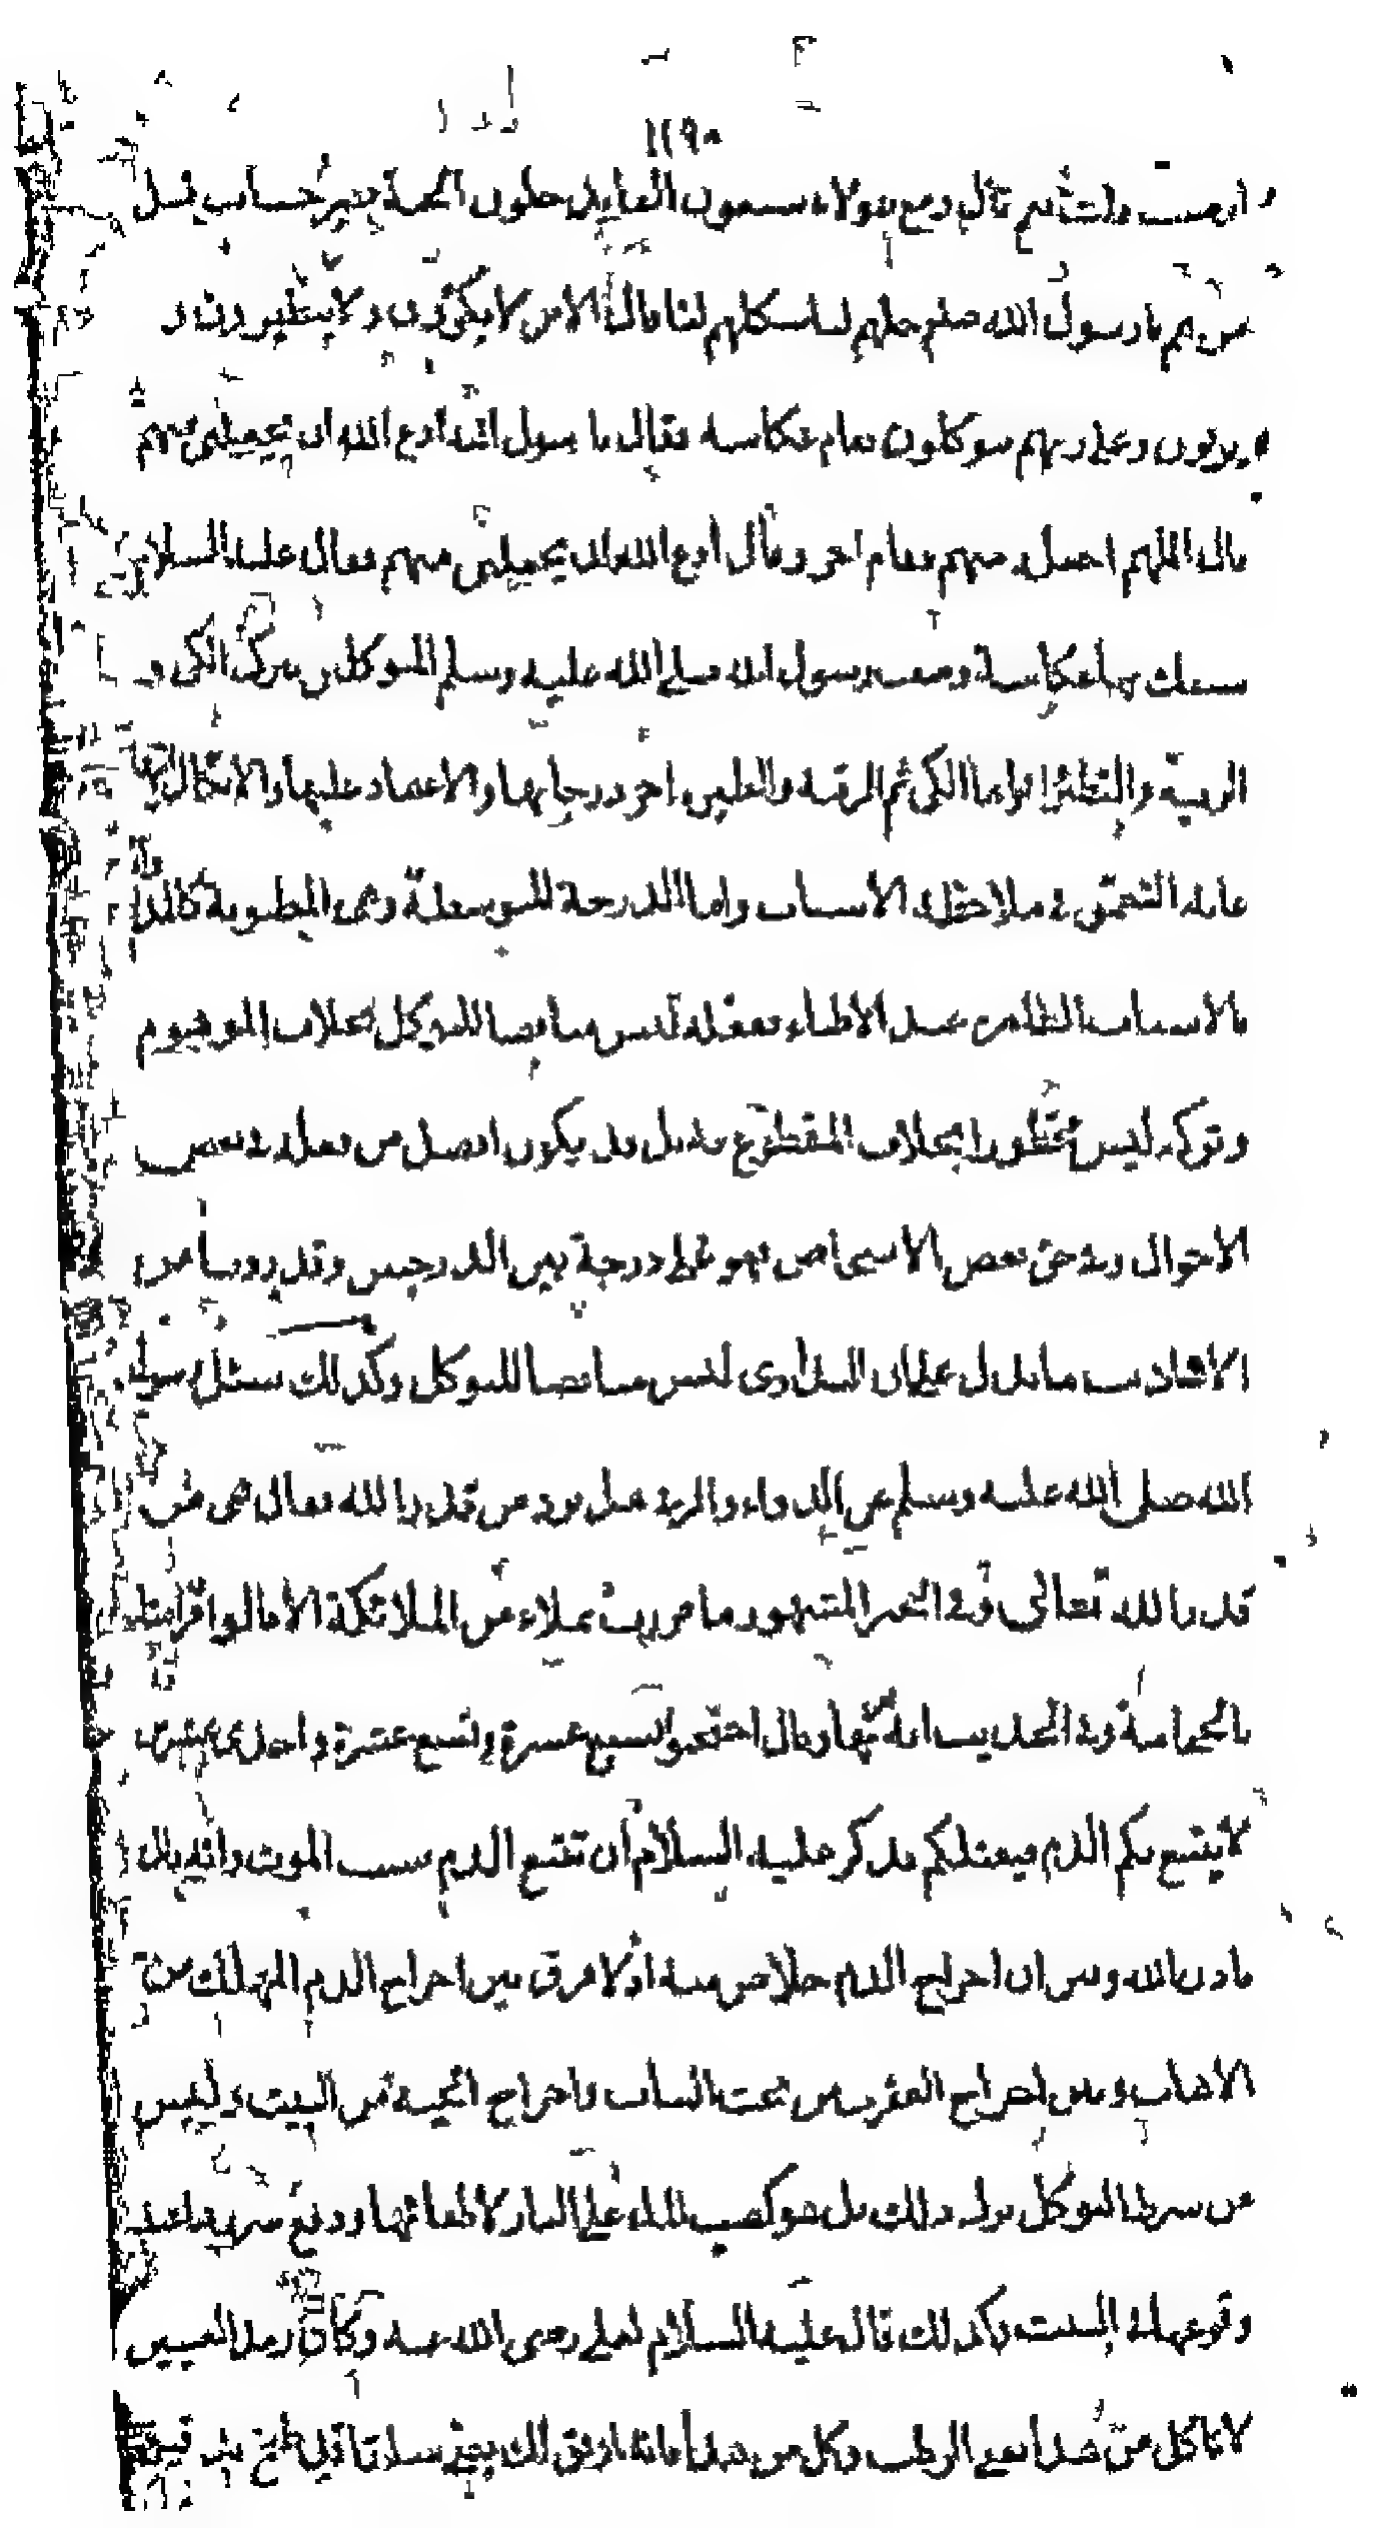 ١١٩٠
ارضيت قلت نعم قال ومع هولاء سبعون الفا يدخلون الجنة بغير حساب قيل
من هم يا رسول الله صلعم لنا قال الذين لا يكتوون ولا يتطيرون و
يرقون وعلى ربهم يتوكلون فقام عكاسه فقال يا رسول الله ادع الله ان يجعلني منهم
قال اللهم اجعله منهم فقام اخر وقال ادع الله ان يجعلني منهم فقال عليه السلام
سبقك بها عكاسة وصف رسول الله صلى الله عليه وسلم المتوكلين بترك الكى و
الرقية والتطير اقواها الكى ثم الرقية والطيرة اخر درجاتها والاعتماد عليها والاتكال
غاية التعمق في ملاحظة الاسباب واما الدرجة المتوسطة وهى المظنونة كالمداواة
بالاسباب الظاهرة عند الاطباء ففعله ليس مناقضا للتوكل بخلاف الموهوم
وتركه ليس محظورا بخلاف المقطوع بل قد يكون افضل من فعله في بعض
الاحوال وفي حق بعض الاشخاص فهو على درجة بين الدرجتين وقد روينا من
ما يدل على ان التداوى ليس مناقضا للتوكل وكذلك سئل رسول
الله صلى الله عليه وسلم عن الدواء والرقى هل يرد من قدر الله فقال هى من
قدر الله تعالى وفي الخبر المشهور ما مررت بملاء من الملائكة الا قالوا
بالحجامة وفي الحديث انه امر بها وقال احتجموا لسبع عشرة وتسع عشرة واحدى وعشرين
لا يتبيغ بكم الدم فيقتلكم فذكر عليه السلام ان تبيغ الدم سبب الموت وانه قاتل
باذن الله وبين ان اخراج الدم خلاص منه اذ لا فرق بين اخراج الدم المهلك من
الاهاب وبين اخراج العقرب من تحت الثياب واخراج الحية من البيت وليس
من شرط التوكل ترك ذلك بل هو كصب الماء على النار لاطفائها ودفع ضررها عند
وقوعها في البيت وكذلك قال عليه السلام لعلى رضى الله عنه وكان رمد العينين
لا تاكل من هذا يعنى الرطب وكل من هذا فانه اوفق لك يعنى سلقا قد طبخ بد قيق